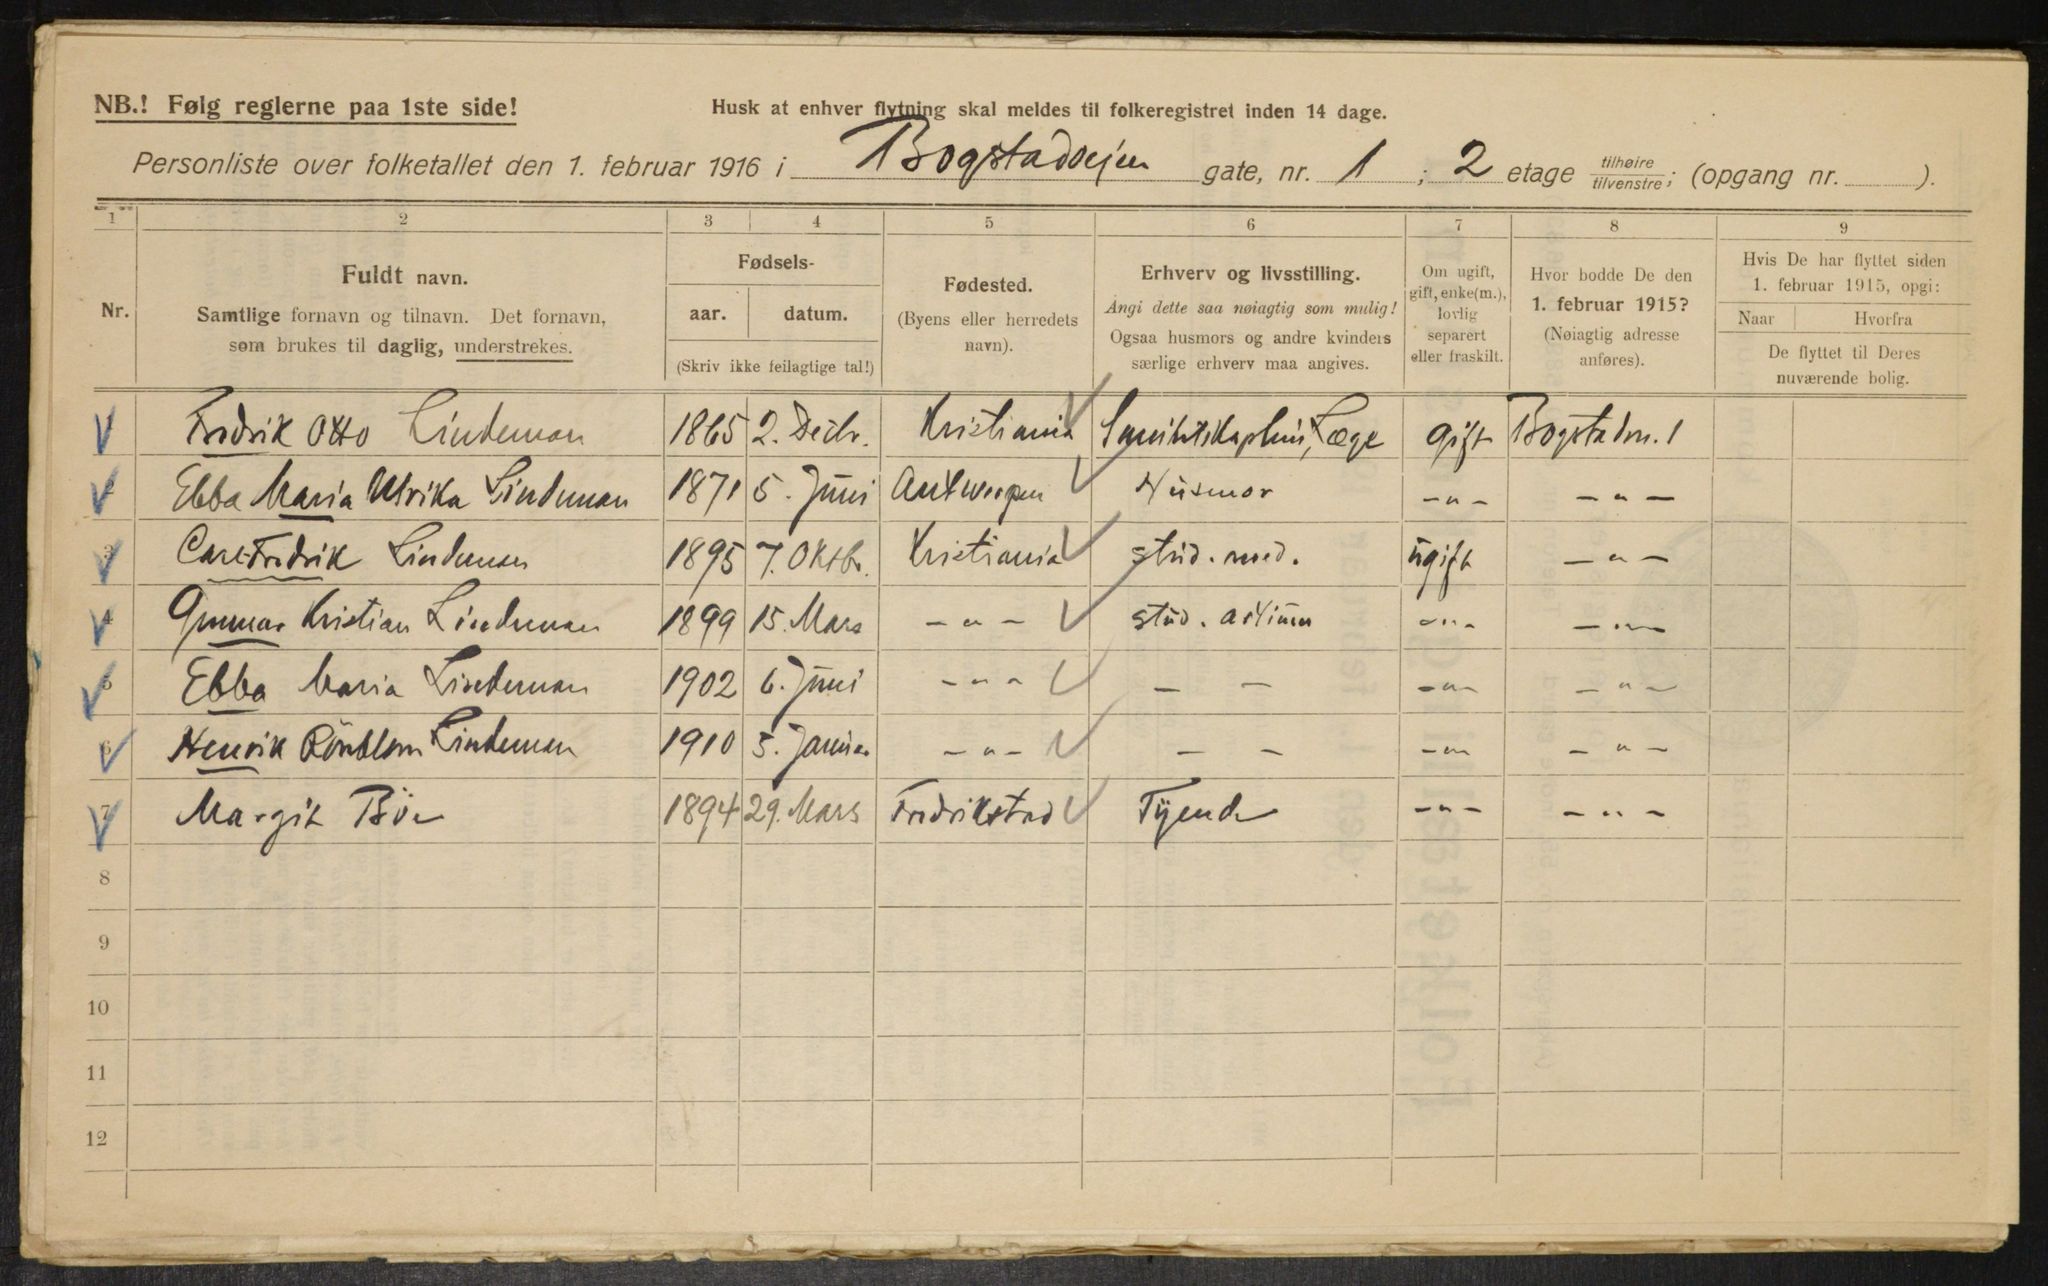 NB.! Følg reglerne paa 1ste side!
Husk at enhver flytning skal meldes til folkeregistret inden 14 dage.
Personliste over folketallet den 1. februar 1916 i Bogstadveien gate, nr. 1 ; 2 etage tilhøire/tilvenstre; (opgang nr. ).
1 2 3 4 5 6 7 8 9
Nr.
Fuldt navn.
Samtlige fornavn og tilnavn. Det fornavn,
som brukes til daglig, understrekes.
Fødsels-
aar. datum.
(Skriv ikke feilagtige tal!)
Fødested.
(Byens eller herredets
navn).
Erhverv og livsstilling.
Angi dette saa nøiagtig som mulig!
Ogsaa husmors og andre kvinders
særlige erhverv maa angives.
Om ugift,
gift, enke(m.),
lovlig
separert
eller fraskilt.
Hvor bodde De den
1. februar 1915?
(Nøiagtig adresse
anføres).
Hvis De har flyttet siden
1. februar 1915, opgi:
Naar Hvorfra
De flyttet til Deres
nuværende bolig.
1 Fredrik Otto Lindeman 1865 2. Decbr. Kristiania Læge gift Bogstadv. 1
2 Ebba Maria Ulrika Lindeman 1871 5. Juni Antwerpen Husmor -"- -"-
3 Carl Fredrik Lindeman 1895 7. Oktbr. Kristiania stud. med. ugift -"-
4 Gunnar Kristian Lindeman 1899 15. Mars -"- stud. artium -"- -"-
5 Ebba Maria Lindeman 1902 6. Juni -"- - - -"- -"-
6 Henrik Rönblom Lindeman 1910 5. Januar -"- - - -"- -"-
7 Margit Böe 1894 29. Mars Fredrikstad Tyende -"- -"-
8
9
10
11
12